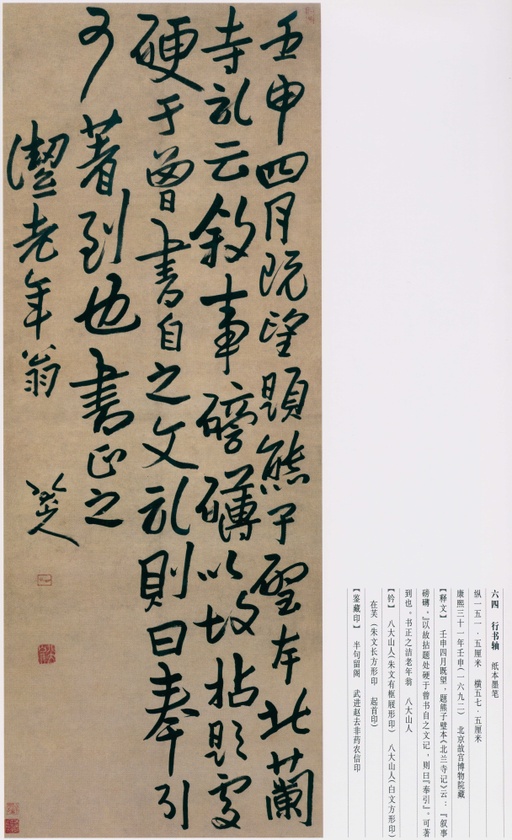 壬申四月既望題熊子壁本北蘭
寺記云敘事磅礴以故拈題處
硬于曾書自之文記則曰奉引
可著到也書正之
潔老年翁
八大山人
六四　行书轴　纸本墨笔
纵一五一·五厘米　横五七·五厘米
康熙三十一年壬申（一六九二）　北京故宫博物院藏
【释文】　壬申四月既望，题熊子璧本《北兰寺记》云：『叙事
磅礴，』以故拈题处硬于曾书自之文记，则曰『奉引』。可著
到也。书正之洁老年翁　八大山人
【钤】　八大山人（朱文有框屐形印）　八大山人（白文方形印）
在芙（朱文长方形印　起首印）
【鉴藏印】　半句留阁　武进赵去非药农信印